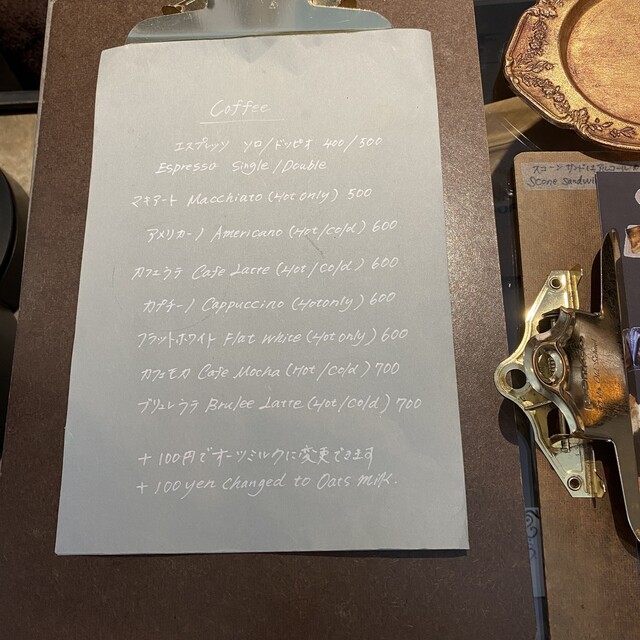 Coffee
エスプレッソ ソロ/ドッピオ 400/500
Espresso Single/Double
マキアート Macchiato (Hot only) 500
アメリカーノ Americano (Hot/Cold) 600
カフェラテ Cafe Latte (Hot/Cold) 600
カプチーノ Cappuccino (Hot only) 600
フラットホワイト Flat White (Hot only) 600
カフェモカ Cafe Mocha (Hot/Cold) 700
ブリュレラテ Brulee Latte (Hot/Cold) 700
+100円でオーツミルクに変更できます
+100yen Changed to Oats Milk.
Scone